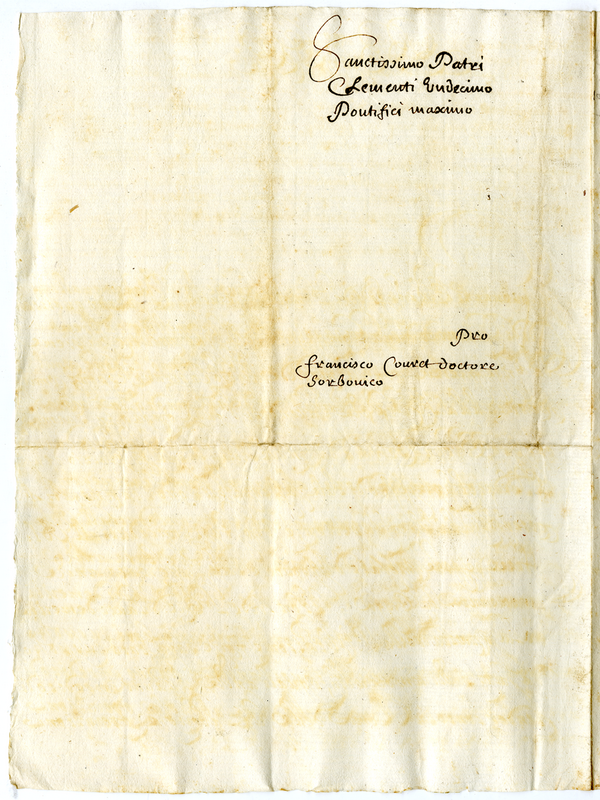 Sanctissimo Patri
Clementi Undecimo
Pontifici maximo
Pro
francisco Couret doctore
Sorbonico